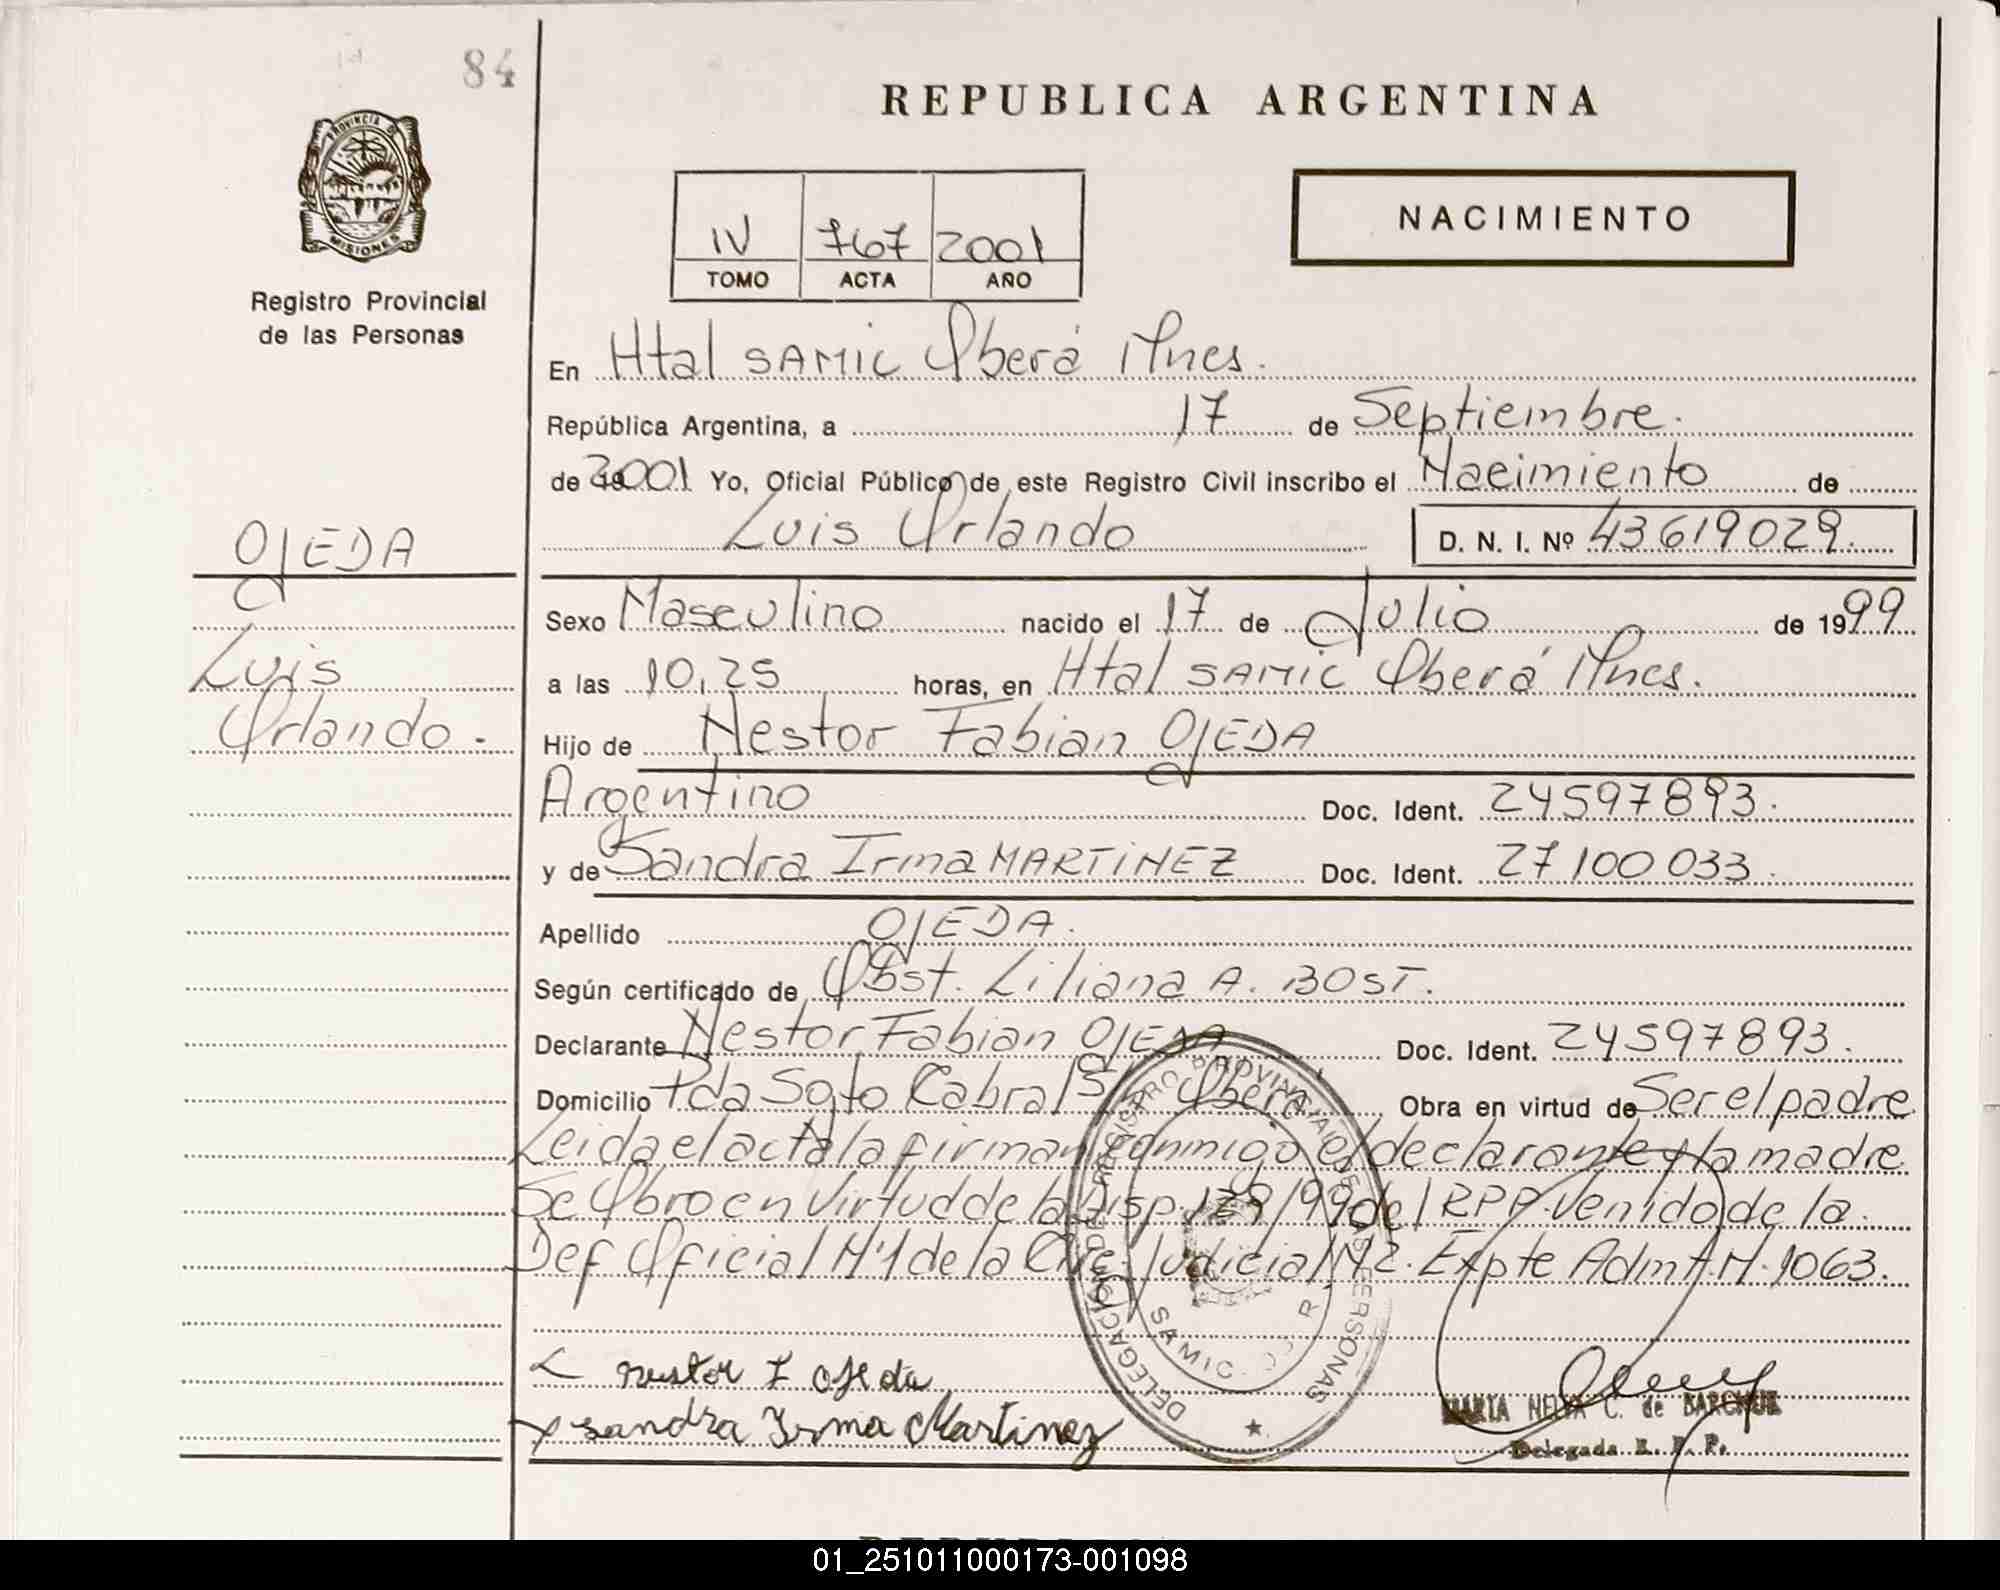 84
REPUBLICA ARGENTINA
PROVINCIA DE
MISIONES
Registro Provincial
de las Personas
IV 767 2001
TOMO ACTA AÑO
NACIMIENTO
En Htal SAMIC Oberá Mnes.
República Argentina, a 17 de Septiembre.
de 2001 Yo, Oficial Público de este Registro Civil inscribo el Nacimiento de
Luis Orlando D. N. I. Nº 43619029.
OJEDA
Luis
Orlando.
Sexo Masculino nacido el 17 de Julio de 1999
a las 10,25 horas, en Htal SAMIC Oberá Mnes.
Hijo de Nestor Fabian OJEDA
Argentino Doc. Ident. 24597893.
y de Sandra Irma MARTINEZ Doc. Ident. 27100033.
Apellido OJEDA.
Según certificado de Obst. Liliana A. BOST.
Declarante Nestor Fabian OJEDA Doc. Ident. 24597893.
Domicilio Pda Sgto Cabral Oberá Obra en virtud de Ser el padre
Leida el acta la firman conmigo el declarante y la madre
Se Obro en Virtud de la Disp. /99 del RPP. Venido de la
Def Oficial Nº1 de la Judicial Nº2. Expte Adm 1063.
DELEGACION DEL REGISTRO PROVINCIAL DE LAS PERSONAS
SAMIC
Nestor F Ojeda
Sandra Irma Martinez
MARTA NELVA C. de
Delegada R. P. P.
01_251011000173-001098